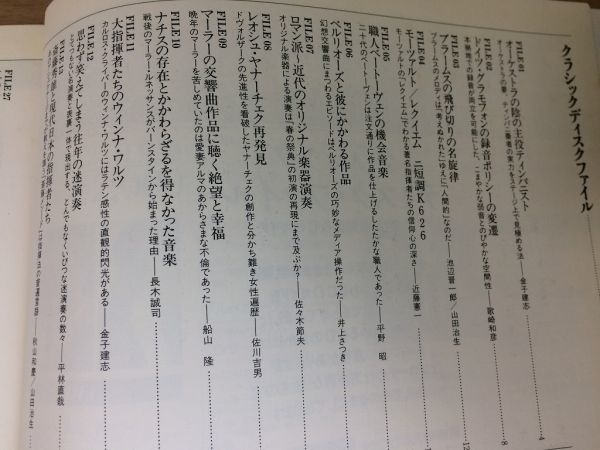 クラシックディスクファイル
FILE 01
オーケストラの陰の主役ティンパニスト
オーケストラの要、ティンパニ奏者の実力をステージ上で見極める法──金子建志
4
FILE 02
ドイツ・グラモフォンの録音ポリシーの変遷
本拠地での録音が両立を可能にした、こまやかな弱音とのびやかな空間性──歌崎和彦
8
FILE 03
ブラームスの飛び切りの名旋律
ブラームスのメロディは「考えぬかれた」ゆえに「人間的」なのだ──池辺晋一郎/山田治生
12
FILE 04
モーツァルト/レクイエム ニ短調K626
モーツァルトの『レクイエム』でわかる著名指揮者たちの信仰心の深さ──近藤憲一
FILE 05
職人ベートーヴェンの機会音楽
二十代のベートーヴェンは注文通りに作品を仕上げるしたたかな職人であった──平野 昭
FILE 06
ベルリオーズと彼にかかわる作品
幻想交響曲にまつわるエピソードはベルリオーズの巧妙なメディア操作だった──井上さつき
FILE 07
ロマン派〜近代のオリジナル楽器演奏
オリジナル楽器による演奏は『春の祭典』の初演の再現にまで及ぶか?──佐々木節夫
FILE 08
レオシュ・ヤナーチェク再発見
ドヴォルザークの先進性を看破したヤナーチェクの創作と分かち難き女性遍歴──佐川吉男
FILE 09
マーラーの交響曲作品に聴く絶望と幸福
晩年のマーラーを苦しめていたのは愛妻アルマのあからさまな不倫であった──船山 隆
FILE 10
ナチスの存在とかかわらざるを得なかった音楽
戦後のマーラー・ルネッサンスがバーンスタインから始まった理由──長木誠司
FILE 11
大指揮者たちのウィンナ・ワルツ
カルロス・クライバーのウィンナ・ワルツにはラテン感性の直観的閃光がある──金子建志
FILE 12
思わず笑えてしまう往年の迷演奏
とんでもなくいびつな迷演奏の数々──平林直哉
FILE 13
現代日本の指揮者たち
秋山和慶/山田治生
FILE 27